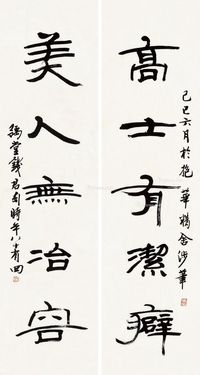 高士有潔癖
己巳六月於抱華精舍涉筆
美人無冶容
豫堂錢君匋時年八十有四